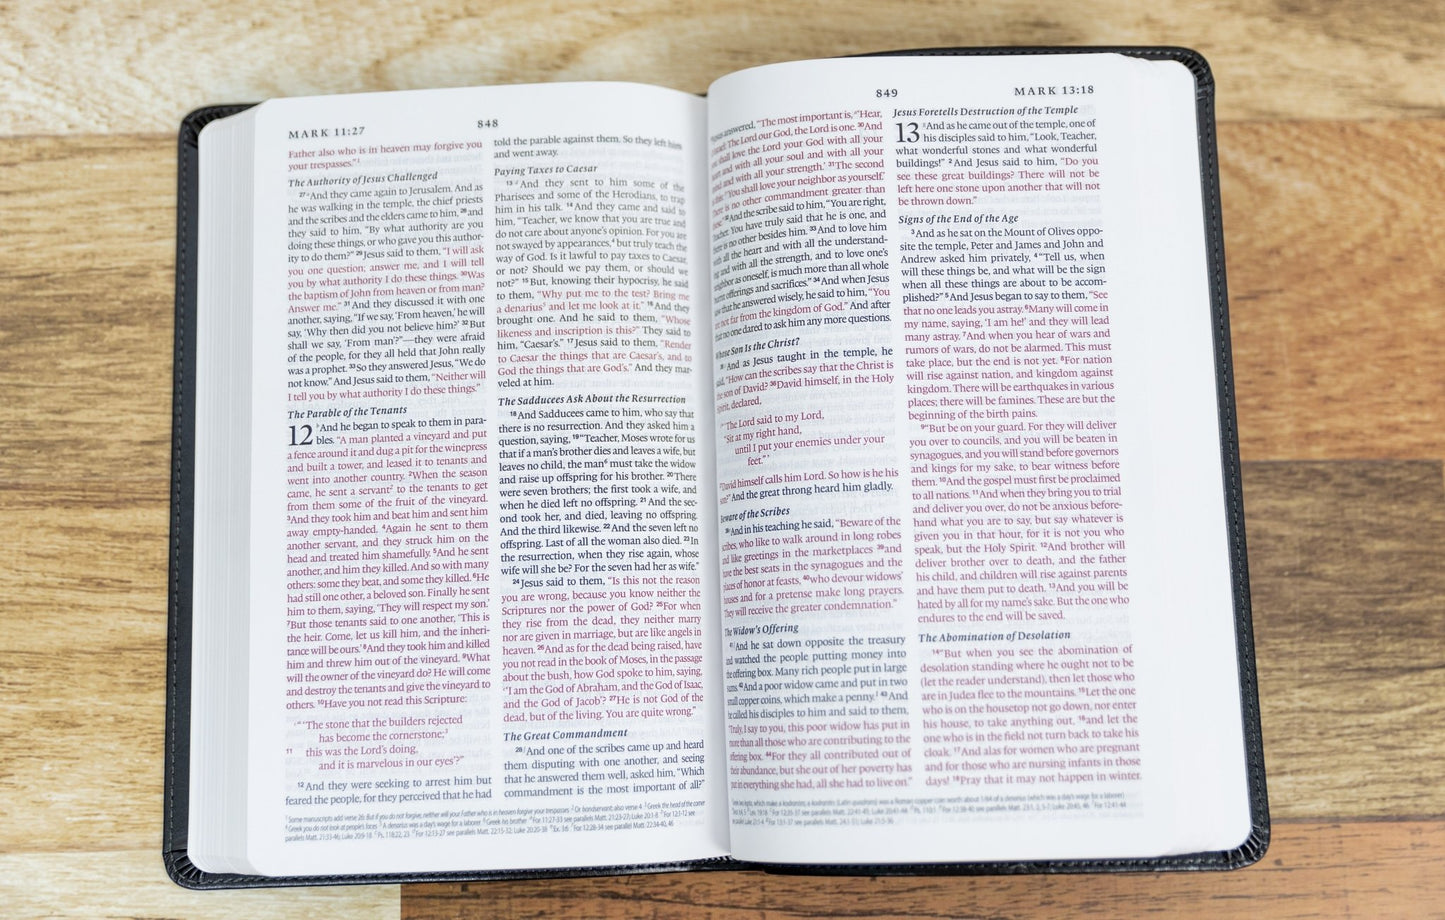 MARK 11:27
848
Father also who is in heaven may forgive you
your trespasses.”¹
The Authority of Jesus Challenged
²⁷And they came again to Jerusalem. And as
he was walking in the temple, the chief priests
and the scribes and the elders came to him, ²⁸and
they said to him, “By what authority are you
doing these things, or who gave you this author-
ity to do them?” ²⁹Jesus said to them, “I will ask
you one question; answer me, and I will tell
you by what authority I do these things. ³⁰Was
the baptism of John from heaven or from man?
Answer me.” ³¹And they discussed it with one
another, saying, “If we say, ‘From heaven,’ he will
say, ‘Why then did you not believe him?’ ³²But
shall we say, ‘From man’?”—they were afraid
of the people, for they all held that John really
was a prophet. ³³So they answered Jesus, “We do
not know.” And Jesus said to them, “Neither will
I tell you by what authority I do these things.”
The Parable of the Tenants
12 And he began to speak to them in para-
bles. “A man planted a vineyard and put
a fence around it and dug a pit for the winepress
and built a tower, and leased it to tenants and
went into another country. ²When the season
came, he sent a servant² to the tenants to get
from them some of the fruit of the vineyard.
³And they took him and beat him and sent him
away empty-handed. ⁴Again he sent to them
another servant, and they struck him on the
head and treated him shamefully. ⁵And he sent
another, and him they killed. And so with many
others: some they beat, and some they killed. ⁶He
had still one other, a beloved son. Finally he sent
him to them, saying, ‘They will respect my son.’
⁷But those tenants said to one another, ‘This is
the heir. Come, let us kill him, and the inheri-
tance will be ours.’ ⁸And they took him and killed
him and threw him out of the vineyard. ⁹What
will the owner of the vineyard do? He will come
and destroy the tenants and give the vineyard to
others. ¹⁰Have you not read this Scripture:
“‘The stone that the builders rejected
has become the cornerstone;³
¹¹ this was the Lord’s doing,
and it is marvelous in our eyes’?”
¹²And they were seeking to arrest him but
feared the people, for they perceived that he had
told the parable against them. So they left him
and went away.
Paying Taxes to Caesar
¹³And they sent to him some of the
Pharisees and some of the Herodians, to trap
him in his talk. ¹⁴And they came and said to
him, “Teacher, we know that you are true and
do not care about anyone’s opinion. For you are
not swayed by appearances,⁴ but truly teach the
way of God. Is it lawful to pay taxes to Caesar,
or not? Should we pay them, or should we
not?” ¹⁵But, knowing their hypocrisy, he said
to them, “Why put me to the test? Bring me
a denarius⁵ and let me look at it.” ¹⁶And they
brought one. And he said to them, “Whose
likeness and inscription is this?” They said to
him, “Caesar’s.” ¹⁷Jesus said to them, “Render
to Caesar the things that are Caesar’s, and to
God the things that are God’s.” And they mar-
veled at him.
The Sadducees Ask About the Resurrection
¹⁸And Sadducees came to him, who say that
there is no resurrection. And they asked him a
question, saying, ¹⁹“Teacher, Moses wrote for us
that if a man’s brother dies and leaves a wife, but
leaves no child, the man⁶ must take the widow
and raise up offspring for his brother. ²⁰There
were seven brothers; the first took a wife, and
when he died left no offspring. ²¹And the sec-
ond took her, and died, leaving no offspring.
And the third likewise. ²²And the seven left no
offspring. Last of all the woman also died. ²³In
the resurrection, when they rise again, whose
wife will she be? For the seven had her as wife.”
²⁴Jesus said to them, “Is this not the reason
you are wrong, because you know neither the
Scriptures nor the power of God? ²⁵For when
they rise from the dead, they neither marry
nor are given in marriage, but are like angels in
heaven. ²⁶And as for the dead being raised, have
you not read in the book of Moses, in the passage
about the bush, how God spoke to him, saying,
‘I am the God of Abraham, and the God of Isaac,
and the God of Jacob’? ²⁷He is not God of the
dead, but of the living. You are quite wrong.”
The Great Commandment
²⁸And one of the scribes came up and heard
them disputing with one another, and seeing
that he answered them well, asked him, “Which
commandment is the most important of all?”
849
MARK 13:18
answered, “The most important is, ‘Hear,
The Lord our God, the Lord is one. ³⁰And
shall love the Lord your God with all your
and with all your soul and with all your
and with all your strength.’ ³¹The second
‘You shall love your neighbor as yourself.’
is no other commandment greater than
³²And the scribe said to him, “You are right,
You have truly said that he is one, and
is no other besides him. ³³And to love him
all the heart and with all the understand-
and with all the strength, and to love one’s
as oneself, is much more than all whole
offerings and sacrifices.” ³⁴And when Jesus
that he answered wisely, he said to him, “You
not far from the kingdom of God.” And after
no one dared to ask him any more questions.
Whose Son Is the Christ?
³⁵And as Jesus taught in the temple, he
said, “How can the scribes say that the Christ is
the son of David? ³⁶David himself, in the Holy
Spirit, declared,
“‘The Lord said to my Lord,
“Sit at my right hand,
until I put your enemies under your
feet.”’
³⁷David himself calls him Lord. So how is he his
son?” And the great throng heard him gladly.
Beware of the Scribes
³⁸And in his teaching he said, “Beware of the
scribes, who like to walk around in long robes
and like greetings in the marketplaces ³⁹and
have the best seats in the synagogues and the
places of honor at feasts, ⁴⁰who devour widows’
houses and for a pretense make long prayers.
They will receive the greater condemnation.”
The Widow’s Offering
⁴¹And he sat down opposite the treasury
and watched the people putting money into
the offering box. Many rich people put in large
sums. ⁴²And a poor widow came and put in two
small copper coins, which make a penny. ⁴³And
he called his disciples to him and said to them,
“Truly, I say to you, this poor widow has put in
more than all those who are contributing to the
offering box. ⁴⁴For they all contributed out of
their abundance, but she out of her poverty has
put in everything she had, all she had to live on.”
Jesus Foretells Destruction of the Temple
13 And as he came out of the temple, one of
his disciples said to him, “Look, Teacher,
what wonderful stones and what wonderful
buildings!” ²And Jesus said to him, “Do you
see these great buildings? There will not be
left here one stone upon another that will not
be thrown down.”
Signs of the End of the Age
³And as he sat on the Mount of Olives oppo-
site the temple, Peter and James and John and
Andrew asked him privately, ⁴“Tell us, when
will these things be, and what will be the sign
when all these things are about to be accom-
plished?” ⁵And Jesus began to say to them, “See
that no one leads you astray. ⁶Many will come in
my name, saying, ‘I am he!’ and they will lead
many astray. ⁷And when you hear of wars and
rumors of wars, do not be alarmed. This must
take place, but the end is not yet. ⁸For nation
will rise against nation, and kingdom against
kingdom. There will be earthquakes in various
places; there will be famines. These are but the
beginning of the birth pains.
⁹“But be on your guard. For they will deliver
you over to councils, and you will be beaten in
synagogues, and you will stand before governors
and kings for my sake, to bear witness before
them. ¹⁰And the gospel must first be proclaimed
to all nations. ¹¹And when they bring you to trial
and deliver you over, do not be anxious before-
hand what you are to say, but say whatever is
given you in that hour, for it is not you who
speak, but the Holy Spirit. ¹²And brother will
deliver brother over to death, and the father
his child, and children will rise against parents
and have them put to death. ¹³And you will be
hated by all for my name’s sake. But the one who
endures to the end will be saved.
The Abomination of Desolation
¹⁴“But when you see the abomination of
desolation standing where he ought not to be
(let the reader understand), then let those who
are in Judea flee to the mountains. ¹⁵Let the one
who is on the housetop not go down, nor enter
his house, to take anything out, ¹⁶and let the
one who is in the field not turn back to take his
cloak. ¹⁷And alas for women who are pregnant
and for those who are nursing infants in those
days! ¹⁸Pray that it may not happen in winter.